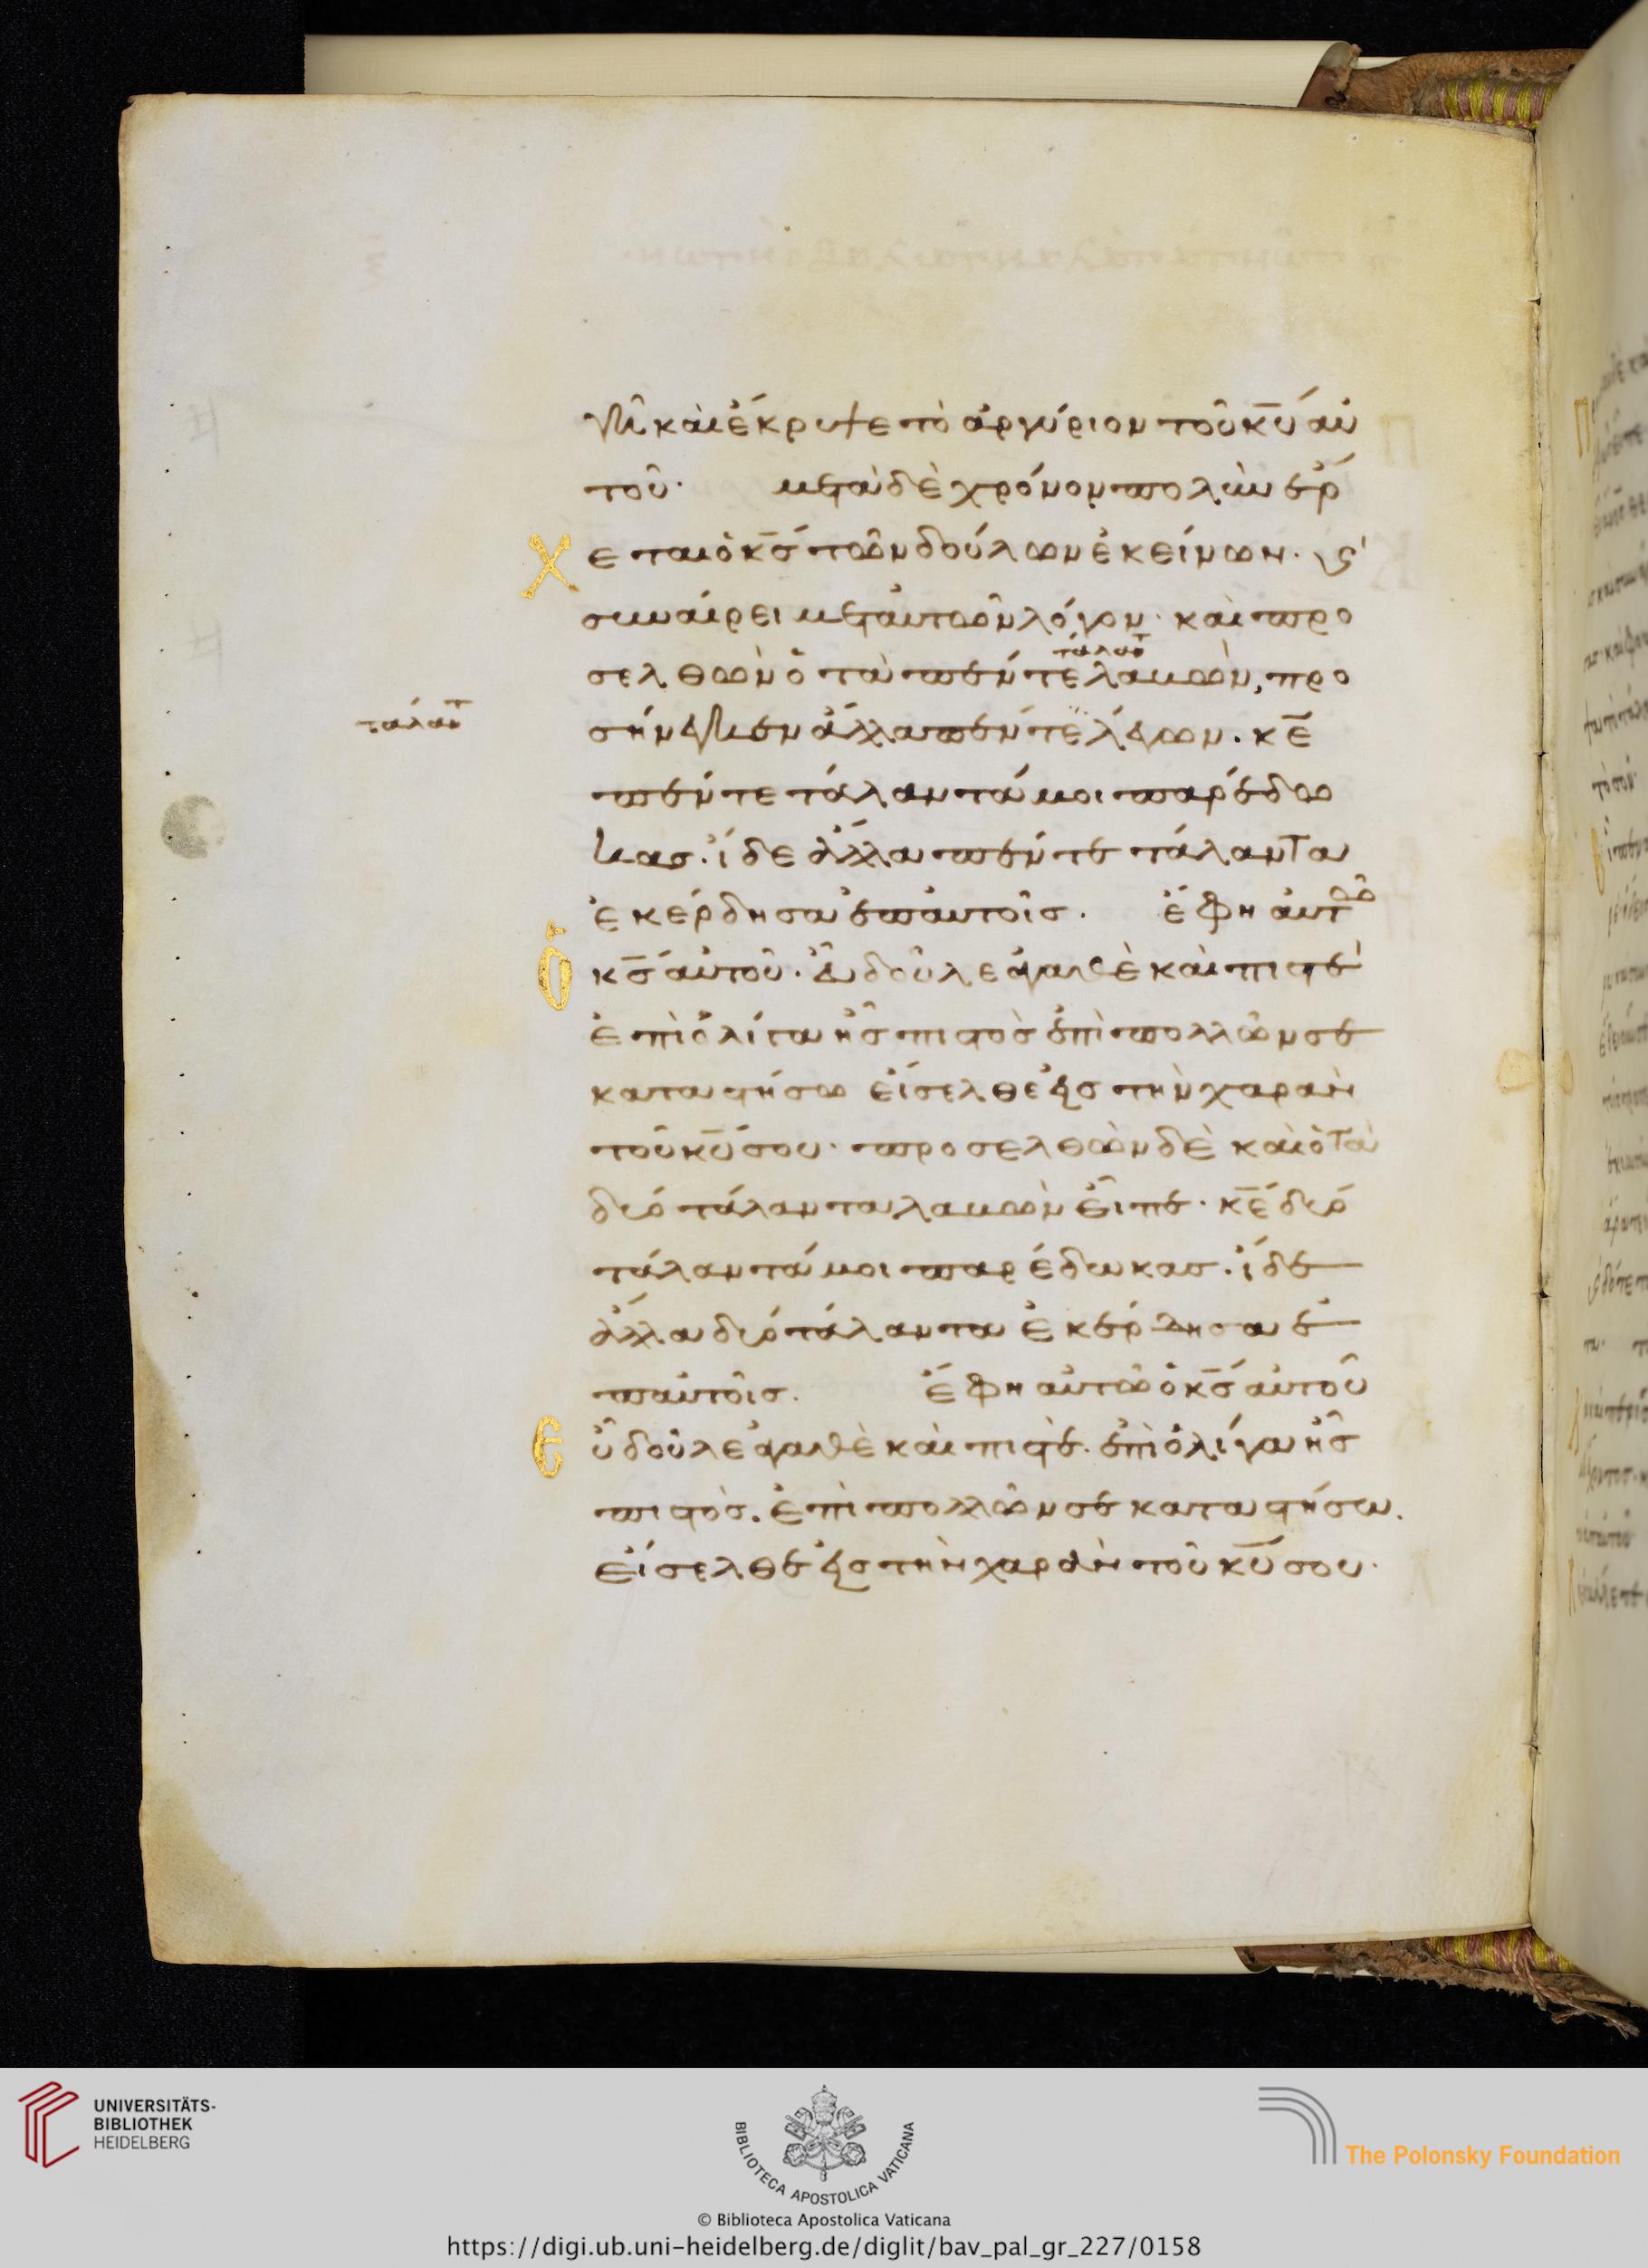 γῆ καὶ ἔκρυψε τὸ ἀργύριον τοῦ κ̅υ̅ αὐ
τοῦ· μετὰ δὲ χρόνον πολὺν ἔρ
χεται ὁ κ̅σ̅ τῶν δούλων ἐκείνων· καὶ
συναίρει μετ' αὐτῶν λόγον· καὶ προ
σελθὼν ὁ τὰ πέντε λαβὼν, προ
τάλαν̅τ̅
σήνεγκεν ἄλλα πέντε λέγων. κ̅ε̅
τάλαν̅τ̅
πέντε τάλαντά μοι παρέδω
κας. ἴδε ἄλλα πέντε τάλαντα
ἐκέρδησα ἐπ αὐτοῖς. ἔφη αὐτῶ
ὁ κ̅σ̅ αὐτοῦ. εὖ δοῦλε ἀγαθὲ καὶ πιστέ
ἐπὶ ὀλίγα ἦς πιστὸς ἐπὶ πολλῶν σε
καταστήσω εἴσελθε εἰς τὴν χαρὰν
τοῦ κ̅υ̅ σου· προσελθὼν δὲ καὶ ὁ τὰ
δύο τάλαντα λαβὼν εἶπε· κ̅ε̅ δύο
τάλαντά μοι παρέδωκας. ἴδε
ἄλλα δύο τάλαντα ἐκέρδησα ἐ
π αὐτοῖς. ἔφη αὐτῶ ὁ κ̅σ̅ αὐτοῦ
εὖ δοῦλε ἀγαθὲ καὶ πιστέ. ἐπὶ ὀλίγα ἦς
πιστὸς. ἐπὶ πολλῶν σε καταστήσω.
εἴσελθε εἰς τὴν χαρὰν τοῦ κ̅υ̅ σου·
UNIVERSITÄTS-
BIBLIOTHEK
HEIDELBERG
BIBLIOTECA APOSTOLICA VATICANA
The Polonsky Foundation
© Biblioteca Apostolica Vaticana
https://digi.ub.uni-heidelberg.de/diglit/bav_pal_gr_227/0158